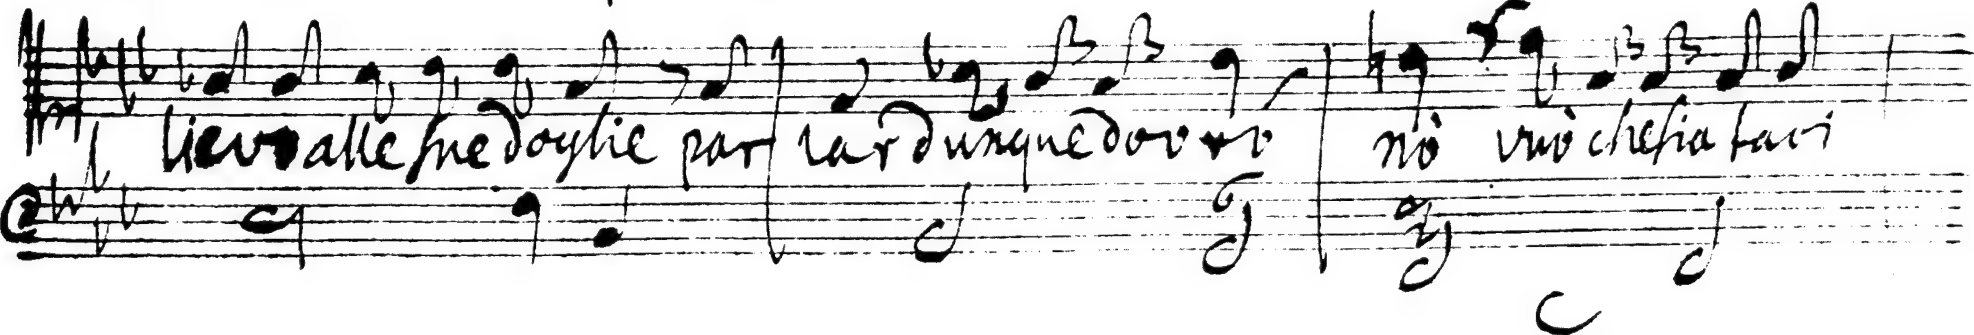 lievo alle sue doglie parlar dunque dovrò nò vuò che sia taci